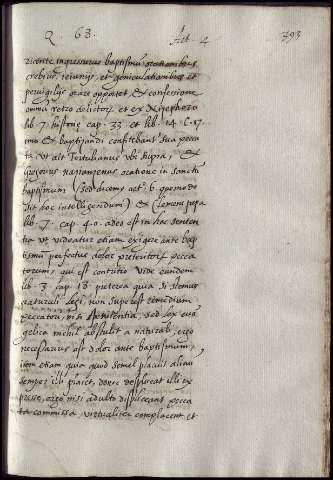 Q. 68. Art. 4 293
dicente ingressurus baptismũ orationibus
crebris, ieiunijs, et geniculationibus et
pervigilijs orare opportet, et confesione
omniũ retro delictorũ et ex Nicephoro
lib. 7. historiæ cap. 33. et lib. 14. C. 17.
imo & baptizandi confitebantur sua pecca
ta vt ait Tertulianus vbi supra, &
gregorius nazianzenus oratione in sanctũ
baptismum (sed dicemus art. 6. quomodo
sit hoc intelligendum) & Clemens papa
lib. 7. cap. 40. adeo est in hac senten
tia vt videatur etiam exigere ante bap
tismũ perfectus dolor preteritorũ pecca
torum, qui est contritio vide eundem
lib. 3. cap. 18. preterea quia si stemus
naturali legi, non superest remedium
peccatorũ nisi penitentia, sed lex eua
gelica nichil abstulit a naturali, ergo
necessarius est dolor ante baptismum,
item etiam quia quod semel placuit alicui
semper illi placet, donec displiceat illi ex
presse, ergo nisi adulto displiceant pecca
ta commissa virtualiter complacent et